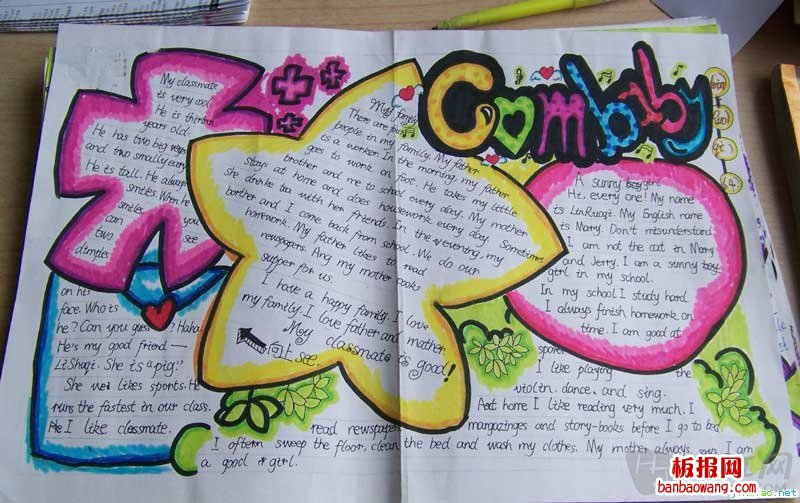 Combaby
My classmate
is very cool
He is thirteen
years old.
He has two big
and two small
He is tall. He always
smiles. When he
smiles you
can see
two
dimples
on his
face. Who is
he? Can you guess? Haha
He's my good friend —
LiShaqi. She is a "pig"!
She likes sports. He
runs the fastest in our class.
I like classmate.
My family
There are four
people in my family. My father
is a worker. In the morning, my father
goes to work on foot. He takes my little
brother and me to school every day. My mother
stays at home and does housework every day. Sometimes
She drinke tea with her friends. In the yevening, my
borther and I come back from school. We do our
homework. My father likes to read
newspapers. Ang my mother cooks
supper for us
I have a happy family. I love
my family. I love father and mother.
My classmate is good!
向上see.
A sunny girl
Hi, every one! My name
is LinRuoqi. My English name
is Marry. Don't misunderstand.
I am not the cat in Marry
and Jerry. I am a sunny
girl in my school.
In my school I study hard.
I always finish homework on
time. I am good at
sport
I like playing the
violin, dance, and sing.
Aat home I like reading very much. I
read newspaper margazinges and story-books before I go to bed.
I oftern sweep the floor, clean the bed and wash my clothes. My mother always I am
a good girl.
板报网
banbaowang.com